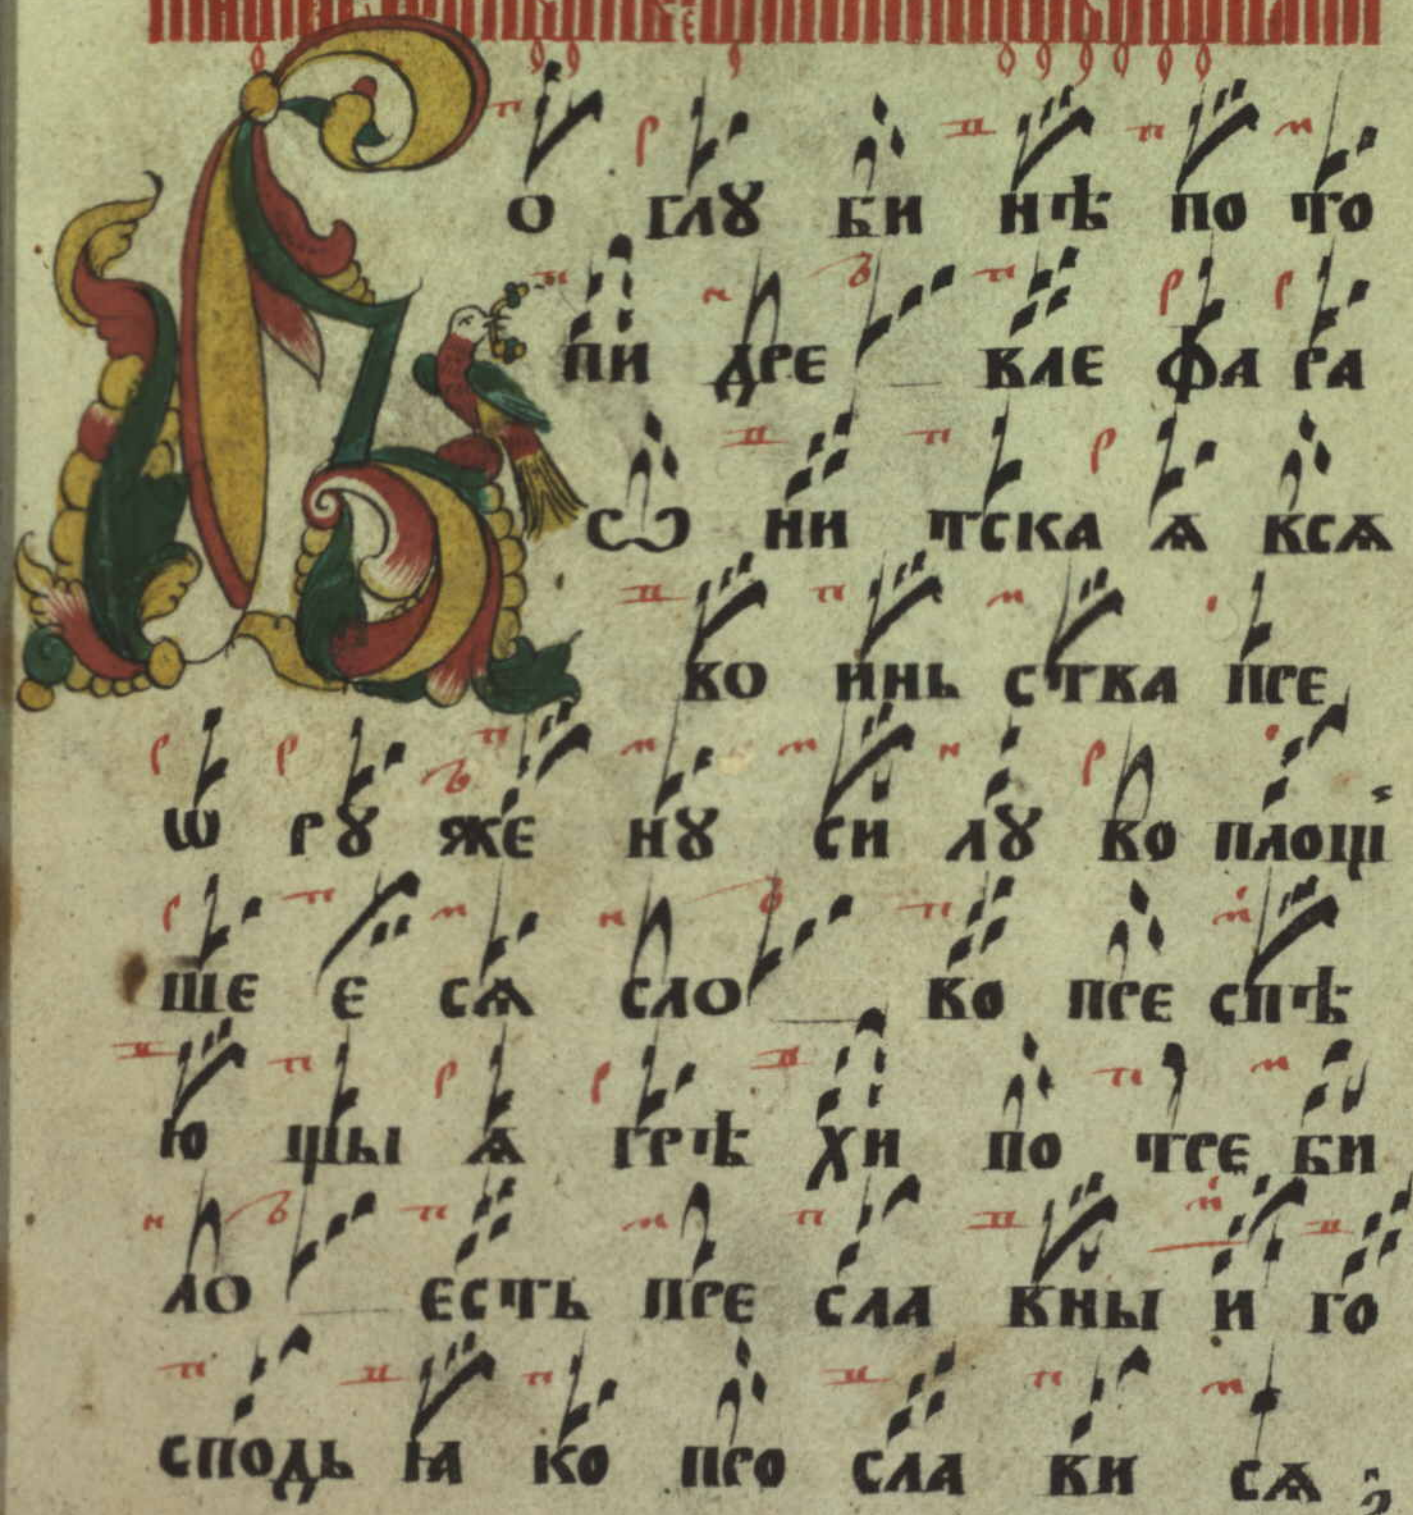 Во глꙋ би нѣ по то
пи дре вле фа ра
ѡ ни тска ѧ всѧ
во инь ства пре
ѡ рꙋ же нꙋ си лꙋ во площ
ше е сѧ сло во пре спѣ
ю щы ѧ грѣ хи по тре би
ло есть пре сла вны и го
сподь ꙗ ко про сла ви сѧ